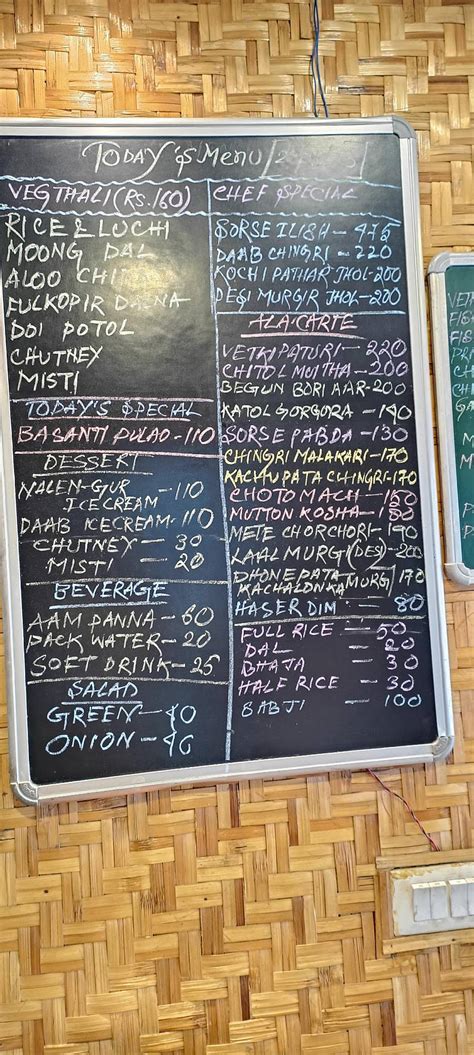 TODAY'S MENU
VEG THALI (RS. 160)
RICE & LUCHI
MOONG DAL
ALOO
FULKOPIR
DOI POTOL
CHUTNEY
MISTI
TODAY'S SPECIAL
BASANTI PULAO - 110
DESSERT
NALEN-GUR
ICECREAM - 110
DAAB ICECREAM - 110
CHUTNEY - 30
MISTI - 20
BEVERAGE
AAM PANNA - 60
PACK WATER - 20
SOFT DRINK - 25
SALAD
GREEN - 40
ONION - 40
CHEF SPECIAL
SORSE ILISH - 475
DAAB CHINGRI - 220
KOCHI PATHAR JHOL - 200
DESI MURGIR JHOL - 200
ALA CARTE
VETKI PATURI - 220
CHITOL MUITHA - 200
BEGUN BORI AAR - 200
KATOL GORGORA - 190
SORSE PABDA - 130
CHINGRI MALAKARI - 170
KACHU PATA CHINGRI - 170
CHOTO MACH - 150
MUTTON KOSHA -
METE CHORCHORI - 190
LAAL MURGI (DESI) - 200
DHONE PATA
KACHALONKA MURGI 170
HASER DIM - 80
FULL RICE - 50
DAL - 20
BHAJA - 30
HALF RICE - 30
SABJI - 100